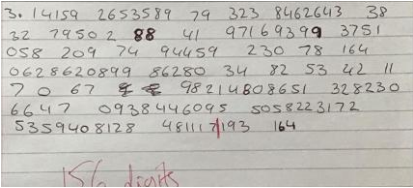 3. 14159 2653589 79 323 8462643 38
32 7950 2 88 41 971693999 3751
058 209 74 94459 230 78 164
0628620899 86280 34 82 53 42 11
7 0 67 98214808651 328230
6647 0938446095 5058223172
5359408128 481117193 164
156 digits